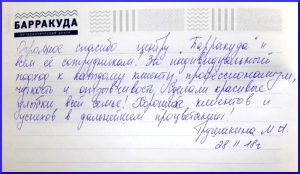 БАРРАКУДА
ОРТОДОНТИЧЕСКИЙ ЦЕНТР
Огромное спасибо центру "Барракуда" и
всем её сотрудникам! За индивидуальный
подход к каждому клиенту, профессионализм,
чуткость и отзывчивость. Сделали красивые
улыбки всей семье! Хороших клиентов и
успехов в дальнейшем процветании!
М. А.
28.11.18г.